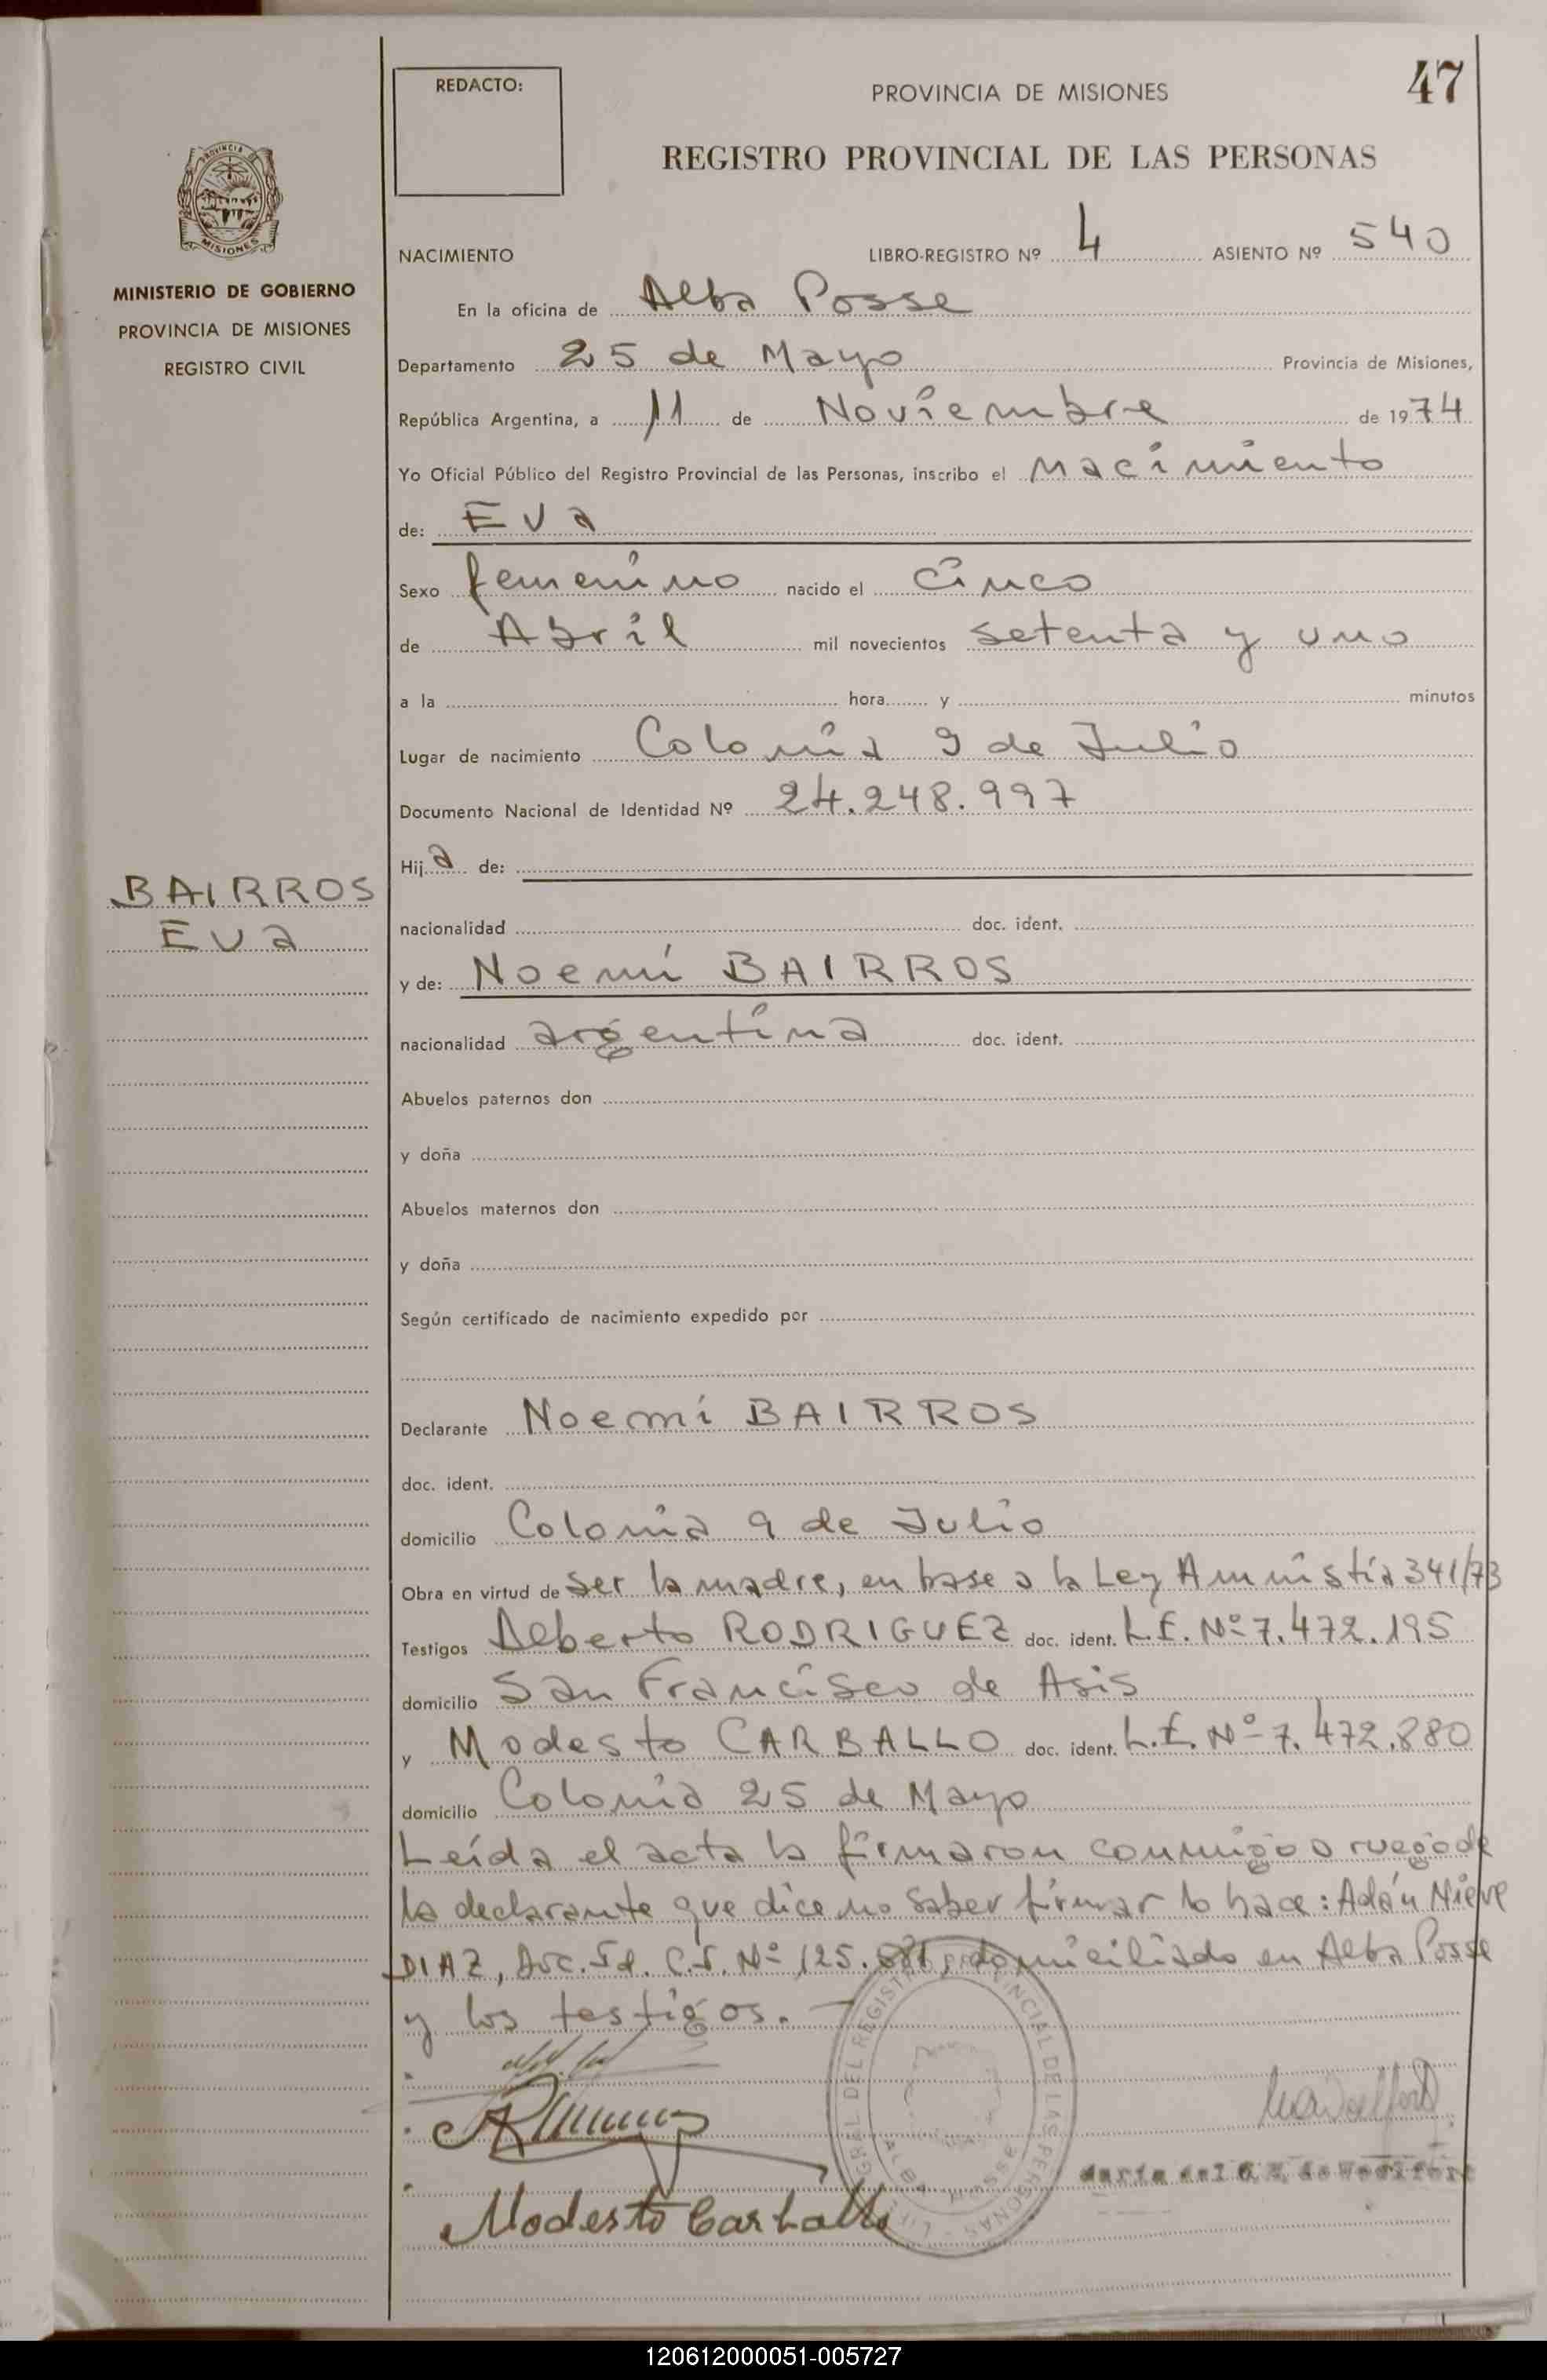 47
REDACTO:
PROVINCIA DE MISIONES
REGISTRO PROVINCIAL DE LAS PERSONAS
PROVINCIA
MISIONES
MINISTERIO DE GOBIERNO
PROVINCIA DE MISIONES
REGISTRO CIVIL
NACIMIENTO LIBRO-REGISTRO Nº 4 ASIENTO Nº 540
En la oficina de Alba Posse
Departamento 25 de Mayo Provincia de Misiones,
República Argentina, a 11 de Noviembre de 1974
Yo Oficial Público del Registro Provincial de las Personas, inscribo el Nacimiento
de: Eva
Sexo femenino nacido el cinco
de Abril mil novecientos setenta y uno
a la hora y minutos
Lugar de nacimiento Colonia 9 de Julio
Documento Nacional de Identidad Nº 24.248.997
Hija de:
BAIRROS
Eva
nacionalidad doc. ident.
y de: Noemí BAIRROS
nacionalidad argentina doc. ident.
Abuelos paternos don
y doña
Abuelos maternos don
y doña
Según certificado de nacimiento expedido por
Declarante Noemí BAIRROS
doc. ident.
domicilio Colonia 9 de Julio
Obra en virtud de Ser la madre, en base a la Ley Amnistia 341/73
Testigos Alberto RODRIGUEZ doc. ident. L.E. Nº 7.472.195
domicilio San Francisco de Asis
y Modesto CARBALLO doc. ident. L.E. Nº 7.472.880
domicilio Colonia 25 de Mayo
Leída el acta la firmaron conmigo a ruego de
la declarante que dice no saber firmar lo hace: Adán Nieve
DIAZ, Doc. Id. C.I. Nº 125. domiciliado en Alba Posse
y los testigos.
DEL REGISTRO PROVINCIAL DE LAS PERSONAS
ALBA POSSE
Modesto Carballo
120612000051-005727